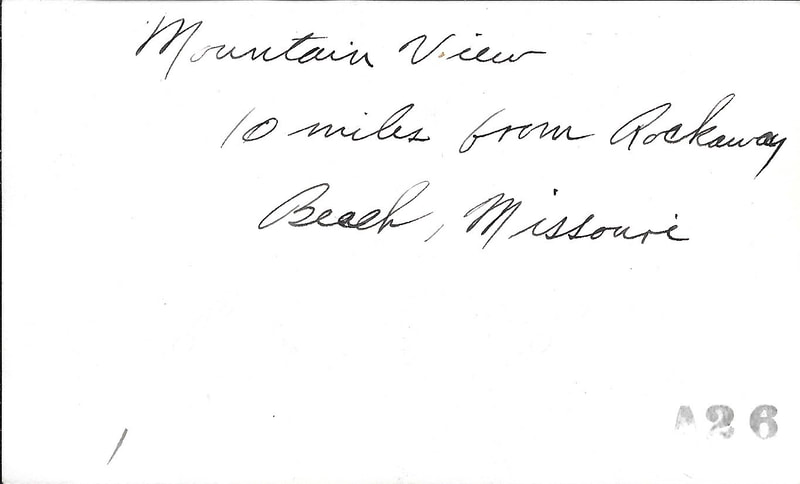 Mountain View
10 miles from Rockaway
Beach, Missouri
A26